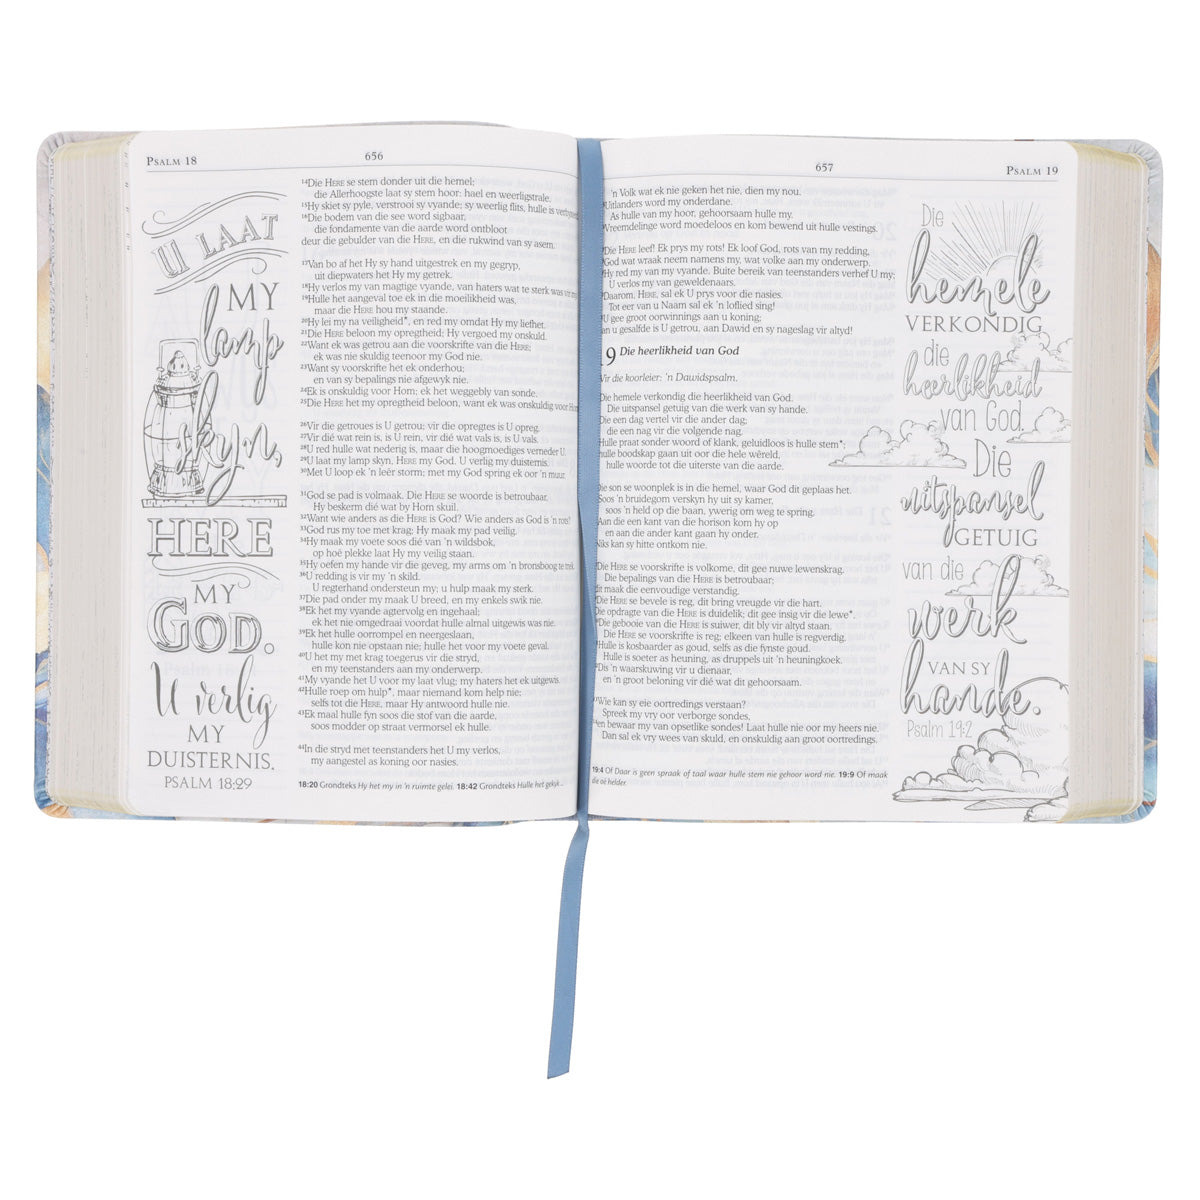 PSALM 18
656
U LAAT
MY
lamp
skyn,
HERE
MY
GOD.
U verlig
MY
DUISTERNIS.
PSALM 18:29
14Die HERE se stem donder uit die hemel;
die Allerhoogste laat sy stem hoor: hael en weerligstrale.
15Hy skiet sy pyle, verstrooi sy vyande; sy weerlig flits, hulle is
16Die bodem van die see word sigbaar,
die fondamente van die aarde word ontbloot
deur die gebulder van die HERE, en die rukwind van sy asem.
17Van bo af het Hy sy hand uitgestrek en my gegryp,
uit diepwaters het Hy my getrek.
18Hy verlos my van magtige vyande, van haters wat te sterk was vir my
19Hulle het aangeval toe ek in die moeilikheid was,
maar die HERE hou my staande.
20Hy lei my na veiligheid*, en red my omdat Hy my liefhet.
21Die HERE beloon my opregtheid; Hy vergoed my onskuld.
22Want ek was getrou aan die voorskrifte van die HERE;
ek was nie skuldig teenoor my God nie.
23Want sy voorskrifte het ek onderhou;
en van sy bepalings nie afgewyk nie.
24Ek is onskuldig voor Hom; ek het weggebly van sonde.
25Die HERE het my opregtheid beloon, want ek was onskuldig voor Hom
26Vir die getroues is U getrou; vir die opregtes is U opreg.
27Vir dié wat rein is, is U rein, vir dié wat vals is, is U vals.
28U red hulle wat nederig is, maar die hoogmoediges verneder U.
29U laat my lamp skyn, HERE my God. U verlig my duisternis.
30Met U loop ek 'n leër storm; met my God spring ek oor 'n muur.
31God se pad is volmaak. Die HERE se woorde is betroubaar,
Hy beskerm dié wat by Hom skuil.
32Want wie anders as die HERE is God? Wie anders as God is 'n rots?
33God rus my toe met krag; Hy maak my pad veilig.
34Hy maak my voete soos dié van 'n wildsbok,
op hoë plekke laat Hy my veilig staan.
35Hy oefen my hande vir die geveg, my arms om 'n bronsboog te trek.
36U redding is vir my 'n skild.
U regterhand ondersteun my; u hulp maak my sterk.
37Die pad onder my maak U breed, en my enkels swik nie.
38Ek het my vyande agtervolg en ingehaal;
ek het nie omgedraai voordat hulle almal uitgewis was nie.
39Ek het hulle oorrompel en neergeslaan,
hulle kon nie opstaan nie; hulle het voor my voete geval.
40U het my met krag toegerus vir die stryd,
en my teenstanders aan my onderwerp.
41My vyande het U voor my laat vlug; my haters het ek uitgewis.
42Hulle roep om hulp*, maar niemand kom help nie;
selfs tot die HERE, maar Hy antwoord hulle nie.
43Ek maal hulle fyn soos die stof van die aarde,
soos modder op straat vermorsel ek hulle.
44In die stryd met teenstanders het U my verlos,
my aangestel as koning oor nasies.
18:20 Grondteks Hy het my in 'n ruimte gelei. 18:42 Grondteks Hulle het gekyk ..
657
PSALM 19
'n Volk wat ek nie geken het nie, dien my nou.
Uitlanders word my onderdane.
As hulle van my hoor, gehoorsaam hulle my.
Vreemdelinge word moedeloos en kom bewend uit hulle vestings.
Die HERE leef! Ek prys my rots! Ek loof God, rots van my redding,
God wat wraak neem namens my, wat volke aan my onderwerp.
Hy red my van my vyande. Buite bereik van teenstanders verhef U my;
U verlos my van geweldenaars.
Daarom, HERE, sal ek U prys voor die nasies.
Tot eer van u Naam sal ek 'n loflied sing!
U gee groot oorwinnings aan u koning;
aan u gesalfde is U getrou, aan Dawid en sy nageslag vir altyd!
9 Die heerlikheid van God
Vir die koorleier: 'n Dawidspsalm.
Die hemele verkondig die heerlikheid van God.
Die uitspansel getuig van die werk van sy hande.
Die een dag vertel vir die ander dag;
die een nag vir die volgende nag.
Hulle praat sonder woord of klank, geluidloos is hulle stem*;
hulle boodskap gaan uit oor die hele wêreld,
hulle woorde tot die uiterste van die aarde.
Die son se woonplek is in die hemel, waar God dit geplaas het.
Soos 'n bruidegom verskyn hy uit sy kamer,
soos 'n held op die baan, ywerig om weg te spring.
Aan die een kant van die horison kom hy op
en aan die ander kant gaan hy onder.
Niks kan sy hitte ontkom nie.
Die HERE se voorskrifte is volkome, dit gee nuwe lewenskrag.
Die bepalings van die HERE is betroubaar;
dit maak die eenvoudige verstandig.
Die HERE se bevele is reg, dit bring vreugde vir die hart.
Die opdragte van die HERE is duidelik; dit gee insig vir die lewe*.
Die gebooie van die HERE is suiwer, dit bly vir altyd staan.
Die HERE se voorskrifte is reg; elkeen van hulle is regverdig.
Hulle is kosbaarder as goud, selfs as die fynste goud.
Hulle is soeter as heuning, as druppels uit 'n heuningkoek.
Dis 'n waarskuwing vir u dienaar,
en 'n groot beloning vir dié wat dit gehoorsaam.
Wie kan sy eie oortredings verstaan?
Spreek my vry oor verborge sondes,
en bewaar my van opsetlike sondes! Laat hulle nie oor my heers nie.
Dan sal ek vry wees van skuld, en onskuldig aan groot oortredings.
19:4 Of Daar is geen spraak of taal waar hulle stem nie gehoor word nie. 19:9 Of maak
die oë helder.
Die
hemele
VERKONDIG
die
heerlikheid
van God.
Die
uitspansel
GETUIG
van die
werk
VAN SY
hande.
Psalm 19:2